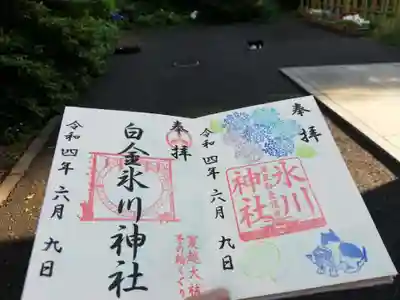 奉拝
氷川神社
令和四年六月九日
奉拝
白金氷川神社
夏越大祓
茅の輪くぐり
令和四年六月九日